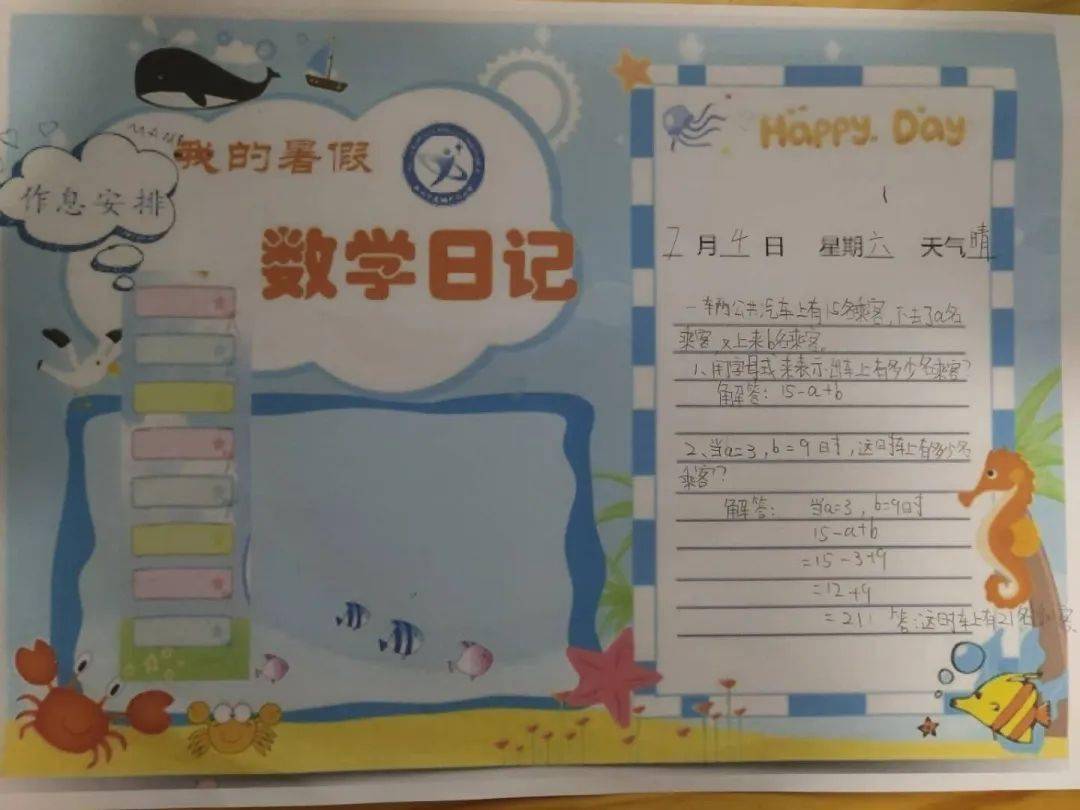 我的暑假
作息安排
数学日记
Happy. Day
7月4日 星期六 天气晴
一辆公共汽车上有15名乘客,下去了a名
乘客,又上来b名乘客。
1、用字母式来表示出车上有多少名乘客?
解答:15-a+b
2、当a=3,b=9时,这时车上有多少名
乘客?
解答: 当a=3,b=9时
15-a+b
=15-3+9
=12+9
=21 答:这时车上有21名乘客